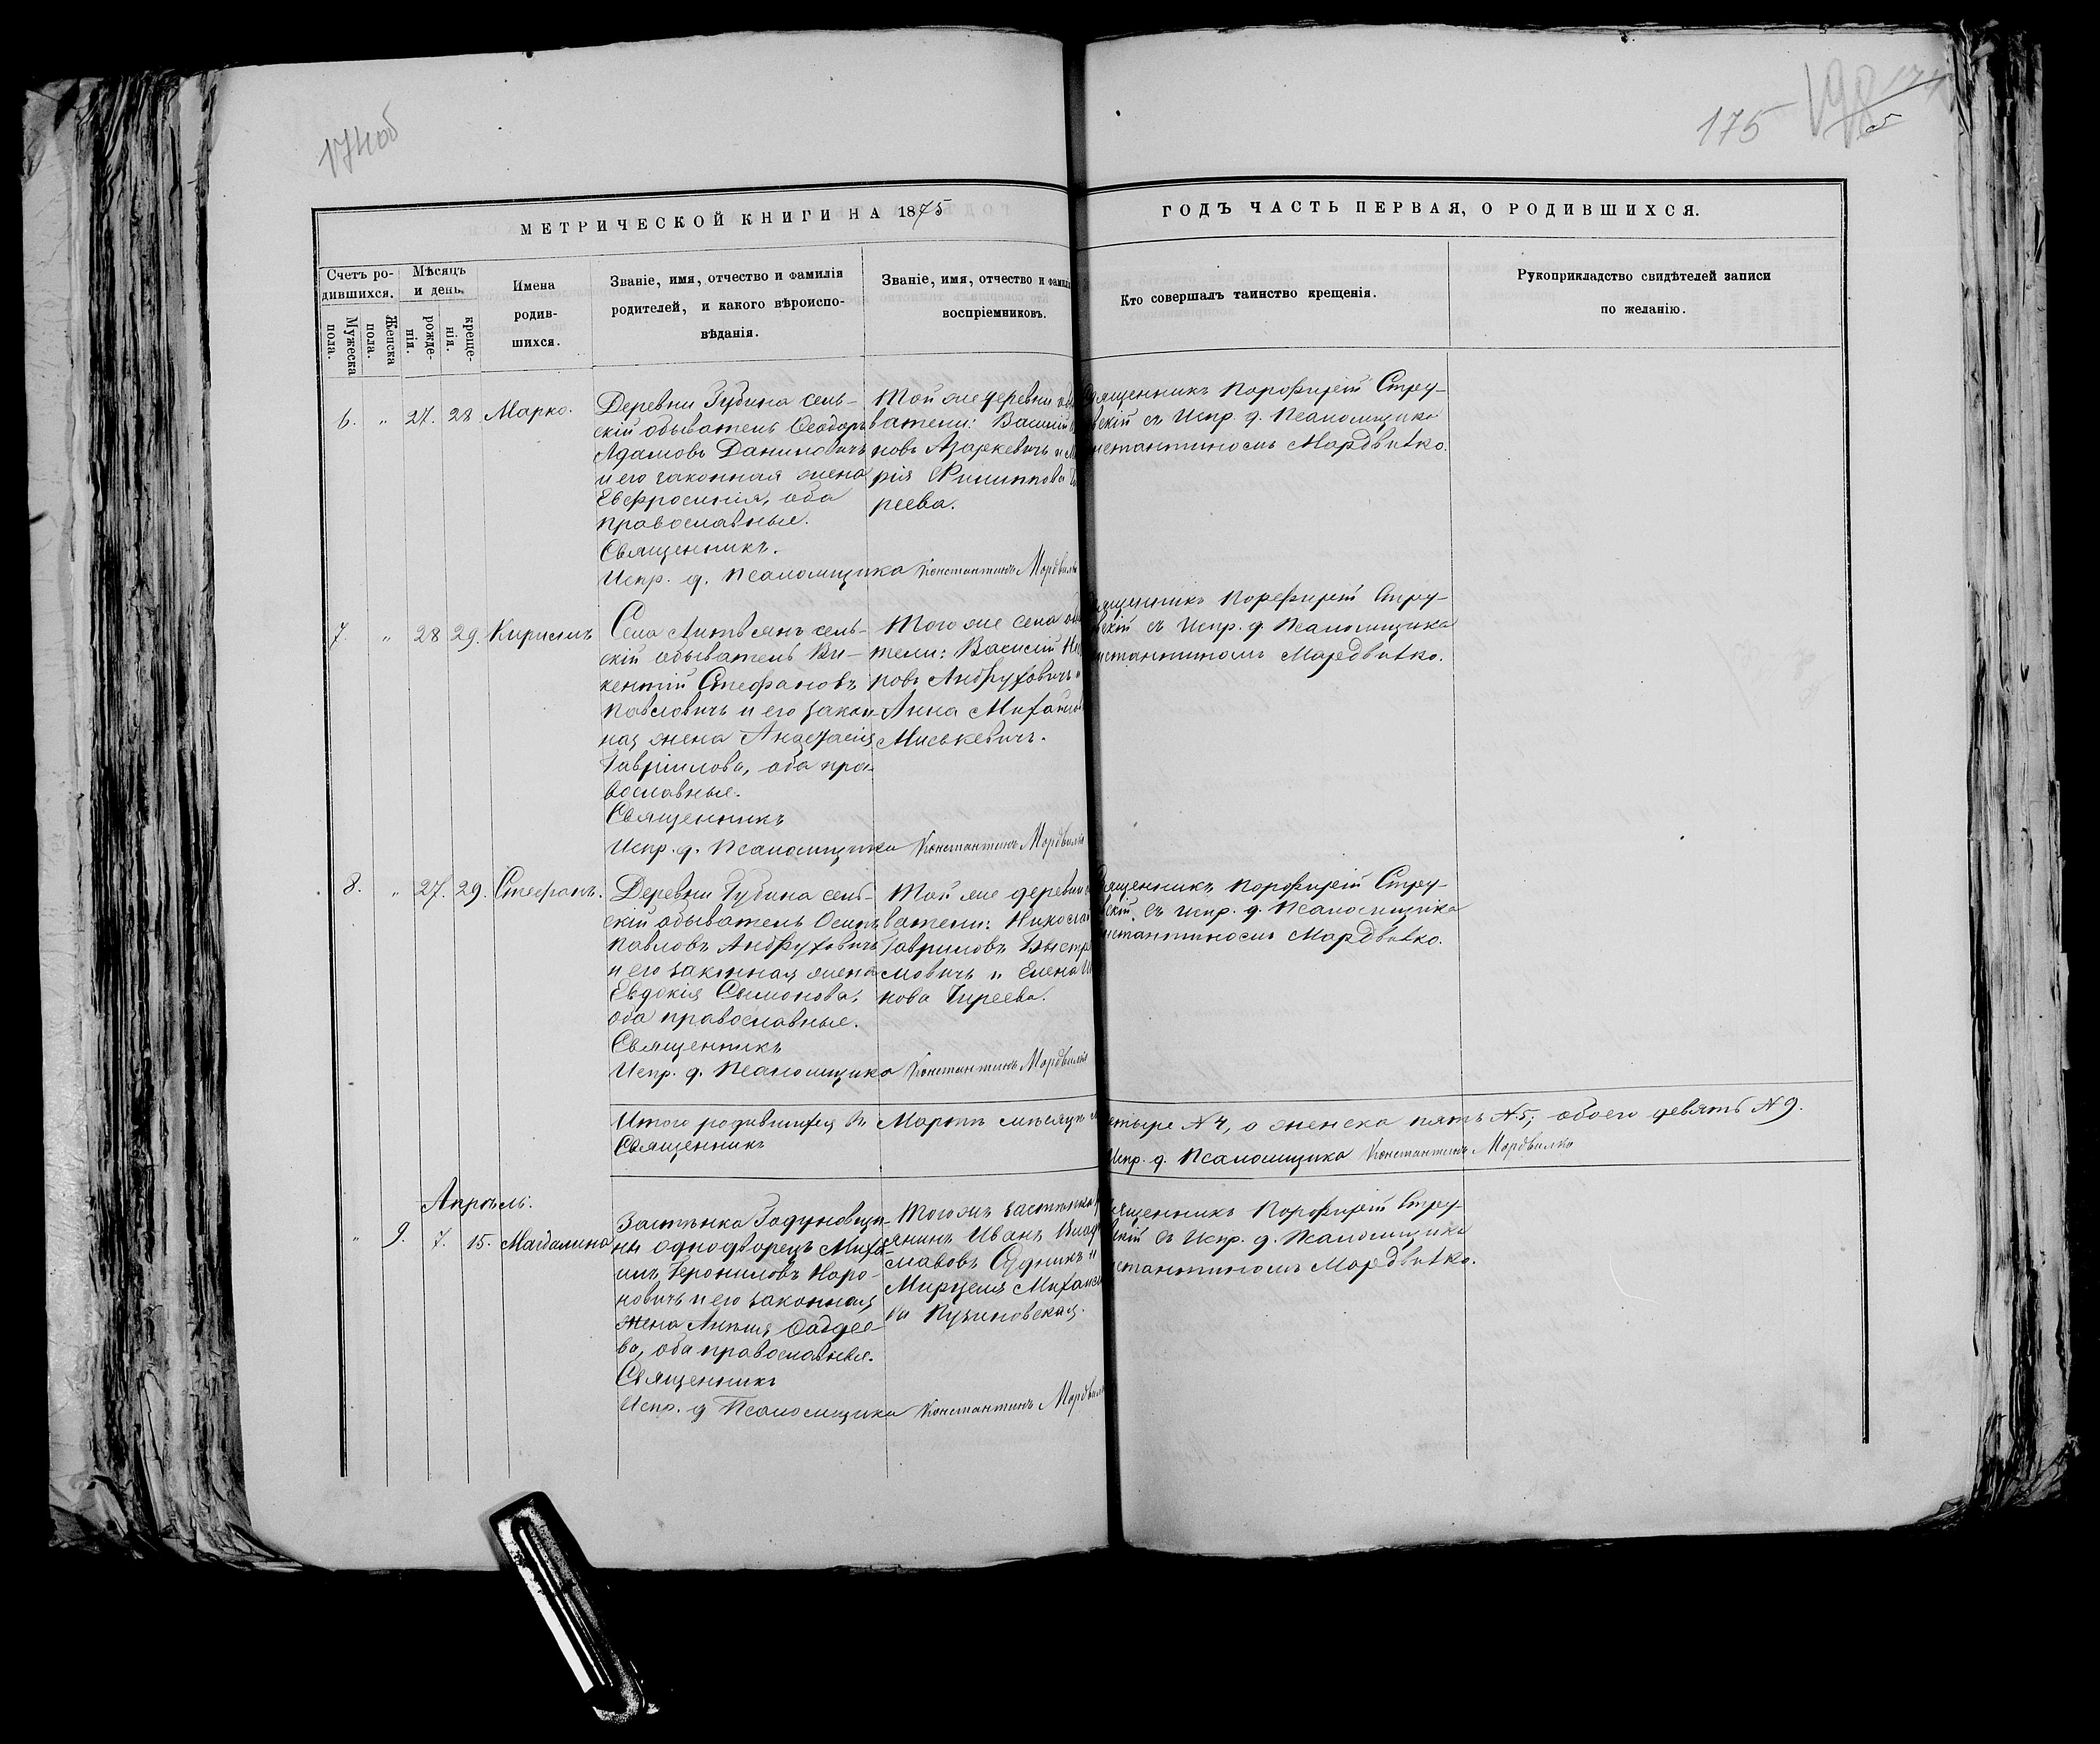 174об
175
МЕТРИЧЕСКОЙ КНИГИ НА 1875
ГОДЪ ЧАСТЬ ПЕРВАЯ, О РОДИВШИХСЯ.
Счетъ ро-
дившихся.
Мужеска пола.
Женска пола.
Мѣсяцъ
и день.
рожде-
нія.
креще-
нія.
Имена
родив-
шихся.
Званіе, имя, отчество и фамилія
родителей, и какого вѣроиспо-
вѣданія.
Званіе, имя, отчество и фамил
воспріемниковъ.
Кто совершалъ таинство крещенія.
Рукоприкладство свидѣтелей записи
по желанію.
6. " 27. 28 Марко.
Деревни Губина сель-
скій обыватель Ѳеодоръ
Адамовъ Даниловичъ
и его законная жена
Евфросинія, оба
православные.
Священникъ.
Испр. д. Псаломщика Константинъ Мордвилко
Той же деревни
ватели: Василій
новъ Азаркевичъ и
рія Филиппова
реева.
Священникъ Порфирій Стру-
вскій съ Испр. д. Псаломщика
нстантиномъ Мордвилко.
7. " 28 29. Кириллъ
Села Литвянъ сель-
скій обыватель Ви-
кентій Стефановъ
Павловичъ и его закон-
ная жена Анастасія
Гавріилова, оба пра-
вославные.
Священникъ
Испр. д. Псаломщика Константинъ Мордвилко
Того же села
тели: Василій
ровъ Андруховичъ и
Анна Михайлов
Миськевичъ.
ященникъ Порфирій Стру-
вскій съ Испр. д. Псаломщика
нстантиномъ Мордвилко.
8. " 27. 29. Стефанъ.
Деревни Губина сель-
скій обыватель Осипъ
Павловъ Андруховичъ
и его законная жена
Евдокія Сымонова,
оба православные.
Священникъ
Испр. д. Псаломщика Константинъ Мордвилко
Той же деревни
ватели: Николай
Гавриловъ Быстри
мовичъ и Елена
нова Гиреева.
ященникъ Порфирій Стру-
вскій, съ Испр. д. Псаломщика
нстантиномъ Мордвилко.
Итого родившихся въ Мартѣ мѣсяцѣ м етыре №4, а женска пять №5; обоего девять №9.
Священникъ
Испр. д. Псаломщика Константинъ Мордвилко
Апрѣль.
" 9. 7. 15. Магдалина
Застѣнка Задуновщи-
ны однодворецъ Миха-
илъ Геронимовъ Наро-
новичъ и его законная
жена Анеля Фадее-
ва, оба православные.
Священникъ
Испр. д Псаломщика Константинъ Мордвилко
Того жъ застѣнка
янинъ Иванъ Влад
славовъ
Марцеля Михайло
ва Пузиновская.
ященникъ Порфирій Стру-
скій съ Испр. д. Псаломщика
нстантиномъ Мордвилко.